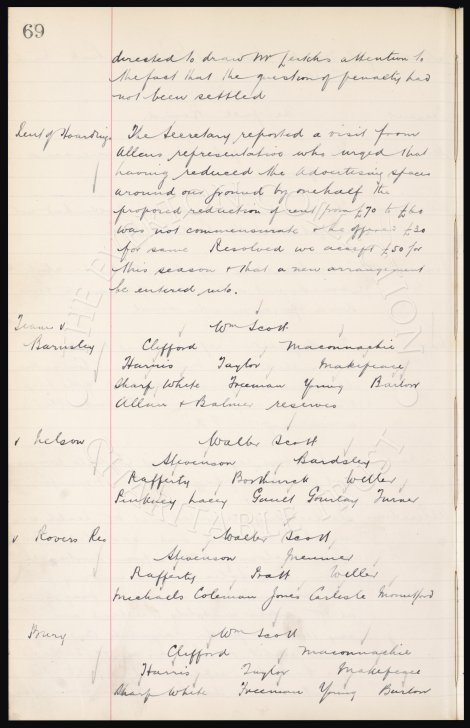 69
directed to draw Mr Jerkhs attention to
the fact that the question of penalty had
not been settled
Rent of Hoardings
The Secretary reported a visit from
Allens representative who urged that
having reduced the Advertising spaces
around our ground by one half the
proposed reduction of rent (from £70 to £60
was not commensurate & he offered £30
for same Resolved we accept £50 for
this season & that a new arrangement
be entered into.
Team v
Barnsley
Wm Scott
Clifford Maconnachie
Harris Taylor Makepeace
Sharp White Freeman Young Barlow
Allan & Balmer reserves
v Nelson
Walter Scott
Stevenson Bardsley
Rafferty Borthwick Weller
Pinkney Lacey Gault Gourlay Turner
v Rovers Res
Walter Scott
Stevenson
Rafferty Pratt Weller
Michaels Coleman Jones Carlisle Mountford
Bury
Wm Scott
Clifford Maconnachie
Harris Taylor Makepeace
Sharp White Freeman Young Barlow
THE EVERTON COLLECTION
CHARITABLE TRUST